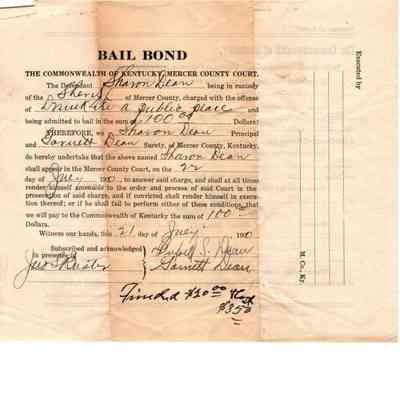 BAIL BOND
THE COMMONWEALTH OF KENTUCKY, MERCER COUNTY COURT.
The Defendant Sharon Dean being in custody
of the Sheriff of Mercer County, charged with the offense
of Drunk in a public place and
being admitted to bail in the sum of $100.00 Dollars:
THEREFORE, we Sharon Dean Principal
and Garnett Dean Surety, of Mercer County, Kentucky,
do hereby undertake that the above named Sharon Dean
shall appear in the Mercer County Court, on the 22
day of July, 190, to answer said charge, and shall at all times
render himself amenable to the order and process of said Court in the
prosecution of said charge, and if convicted shall render himself in execu-
tion thereof; or if he shall fail to perform either of these conditions, that
we will pay to the Commonwealth of Kentucky the sum of 100
Dollars.
Witness our hands, this 21 day of July 190
Subscribed and acknowledged
in presence of
S. Dean
Garnett Dean
Fined $10.00
$3.50
Executed by
M. Co., Ky.